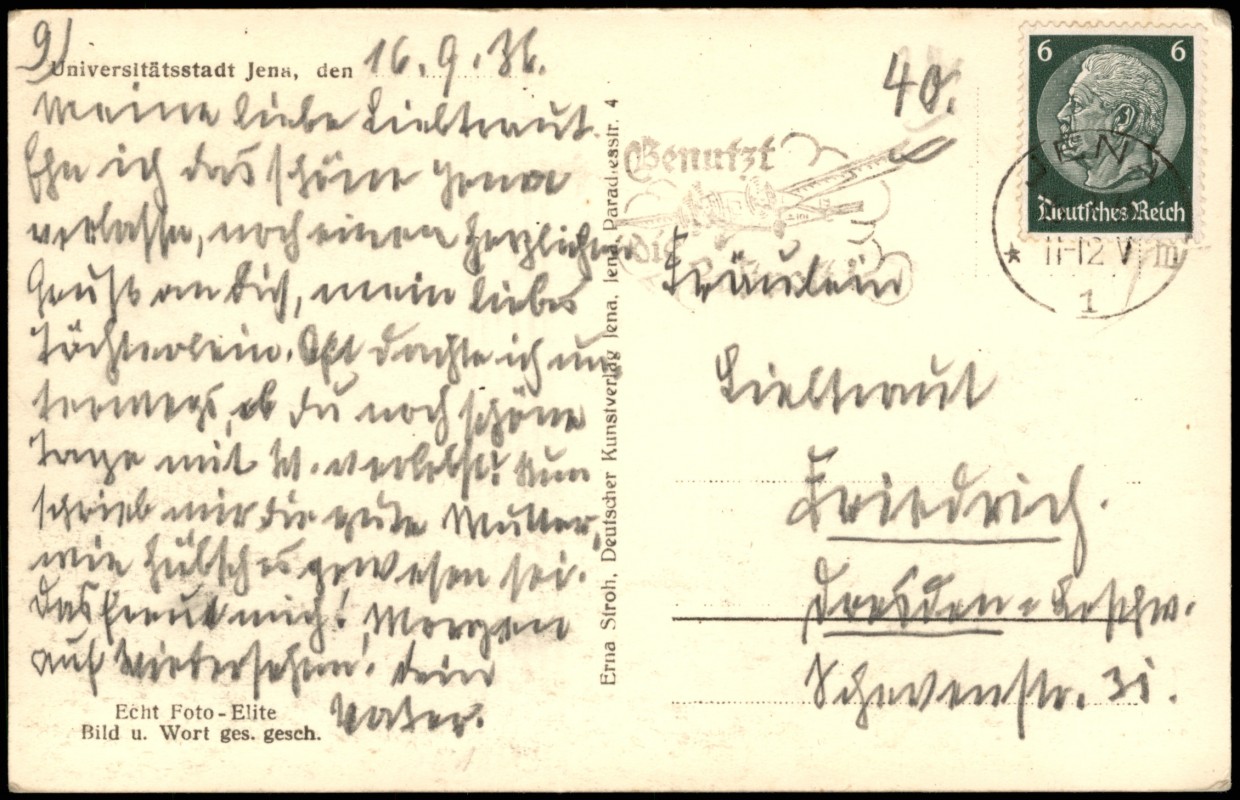 9)
Universitätsstadt Jena, den 16.9.36.
Meine liebe Liebtraut.
Ehe ich das schöne Jena
verlasse, noch einen herzlichen
Gruß an Dich, mein liebes
Töchterlein. Oft dachte ich un-
terwegs, ob Du noch schöne
Tage mit W. verlebst? Nun
schrieb mir die gute Mutter,
wie hübsch es gewesen sei.
Das freut mich! Morgen
auf Wiedersehen! Dein
Vater.
Echt Foto-Elite
Bild u. Wort ges. gesch.
Erna Stroh, Deutscher Kunstverlag Jena, Jena, Paradiesstr. 4
40.
Benutzt
Die
6 6
Deutsches Reich
JENA
* 11-12 V m
1
Fräulein
Liebtraut
Friedrich.
Dresden-Loschw.
Schevenstr. 31.